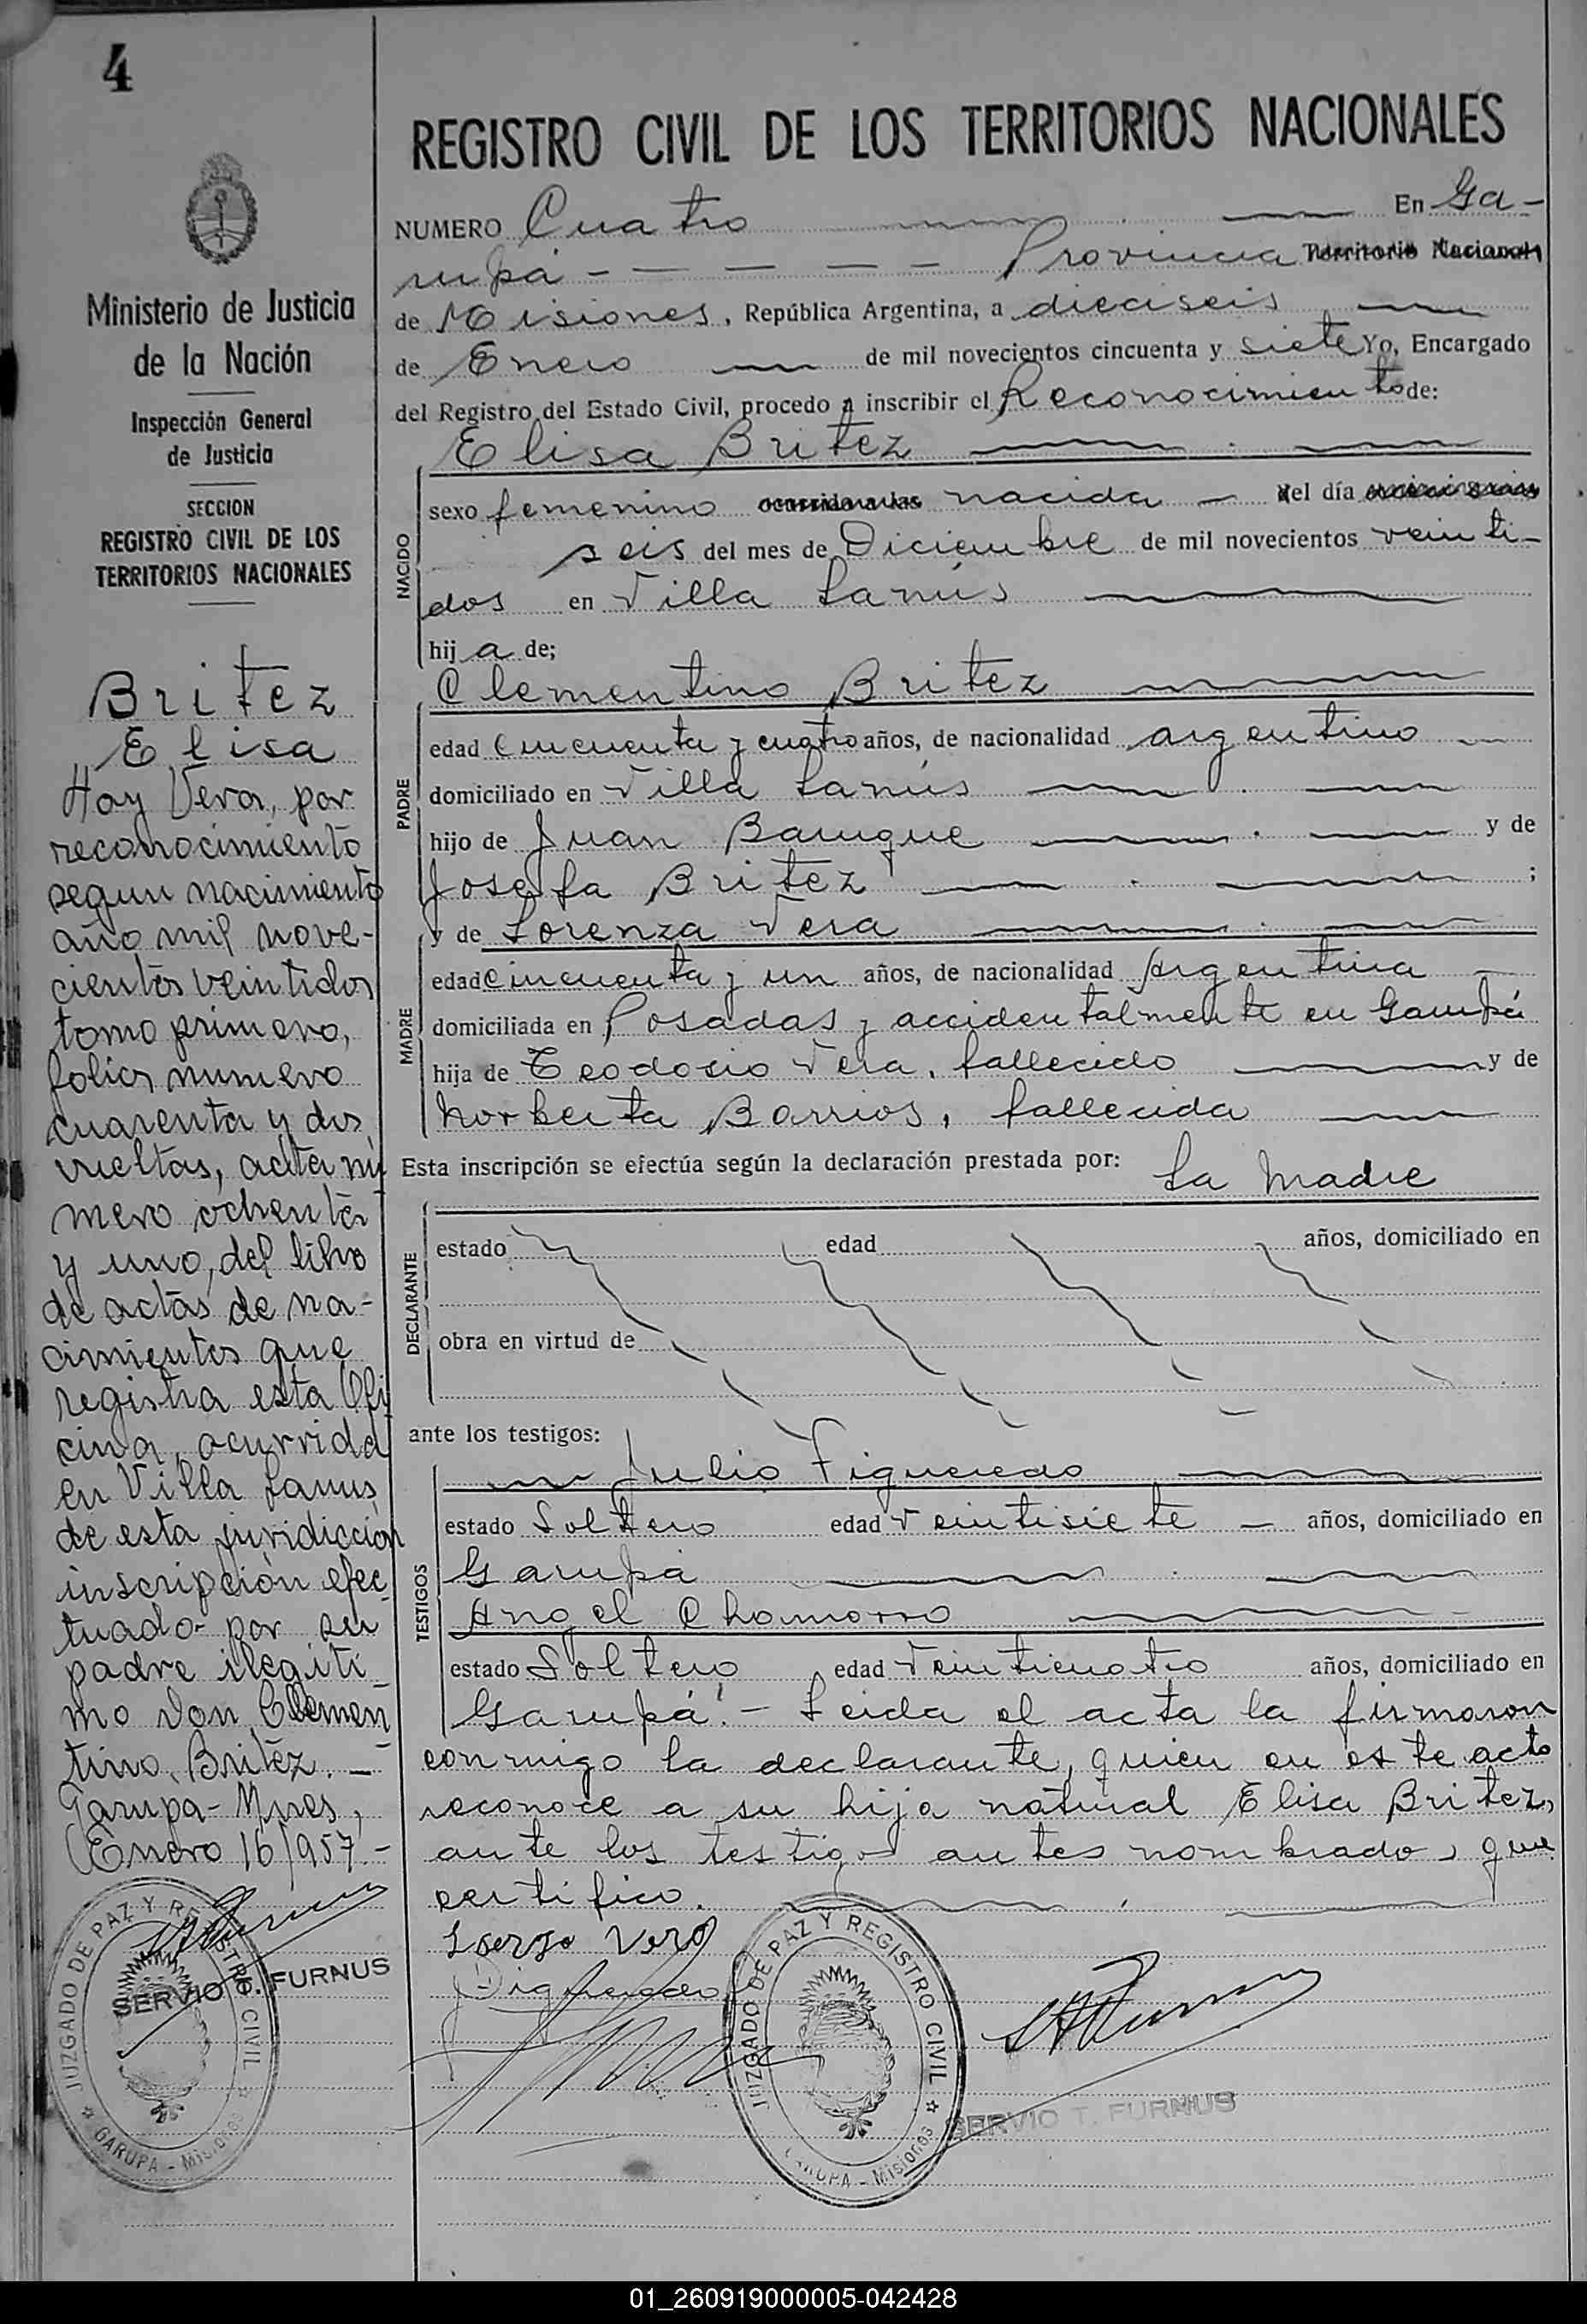 4
REGISTRO CIVIL DE LOS TERRITORIOS NACIONALES
NUMERO Cuatro En Ga-
rupá - - - - - - Provincia Territorio Nacional
de Misiones, República Argentina, a dieciseis
de Enero de mil novecientos cincuenta y siete Yo, Encargado
del Registro del Estado Civil, procedo a inscribir el Reconocimiento de:
Elisa Britez
NACIDO
sexo femenino nacida del día
seis del mes de Diciembre de mil novecientos veinti-
dos en Villa Lanús
hija de;
Clementino Britez
PADRE
edad cincuenta y cuatro años, de nacionalidad argentino
domiciliado en Villa Lanús
hijo de Juan y de
Josefa Britez ;
y de Lorenza Vera
MADRE
edad cincuenta y un años, de nacionalidad Argentina
domiciliada en Posadas y accidentalmente en Garupá
hija de Teodosio Vera, fallecido y de
Norberta Barrios, fallecida
Esta inscripción se efectúa según la declaración prestada por: La Madre
DECLARANTE
estado edad años, domiciliado en
obra en virtud de
ante los testigos:
Julio Figueredo
TESTIGOS
estado Soltero edad Veintisiete años, domiciliado en
Garupá
Angel Chamorro
estado Soltero edad Veinticuatro años, domiciliado en
Garupá.- Leida el acta la firmaron
conmigo la declarante, quien en este acto
reconoce a su hija natural Elisa Britez,
ante los testigos antes nombrados que
certifico.
Vera
Figueredo
JUZGADO DE PAZ Y REGISTRO CIVIL
GARUPA - Misiones
SERVIO T. FURNUS
Ministerio de Justicia
de la Nación
Inspección General
de Justicia
SECCION
REGISTRO CIVIL DE LOS
TERRITORIOS NACIONALES
Britez
Elisa
Hoy Vera, por
reconocimiento
segun nacimiento
año mil nove-
cientos veintidos
tomo primero,
folios numero
cuarenta y dos
vueltas, acta nú
mero ochenta
y uno, del libro
de actas de na-
cimientos que
registra esta Ofi
cina, ocurrida
en Villa Lanus
de esta juridicción
inscripción efec
tuado por su
padre ilegiti
mo don Clemen
tino Britéz. -
Garupa - Mnes,
Enero 16/957.-
JUZGADO DE PAZ Y REGISTRO CIVIL
GARUPA - Misiones
SERVIO T. FURNUS
01_260919000005-042428